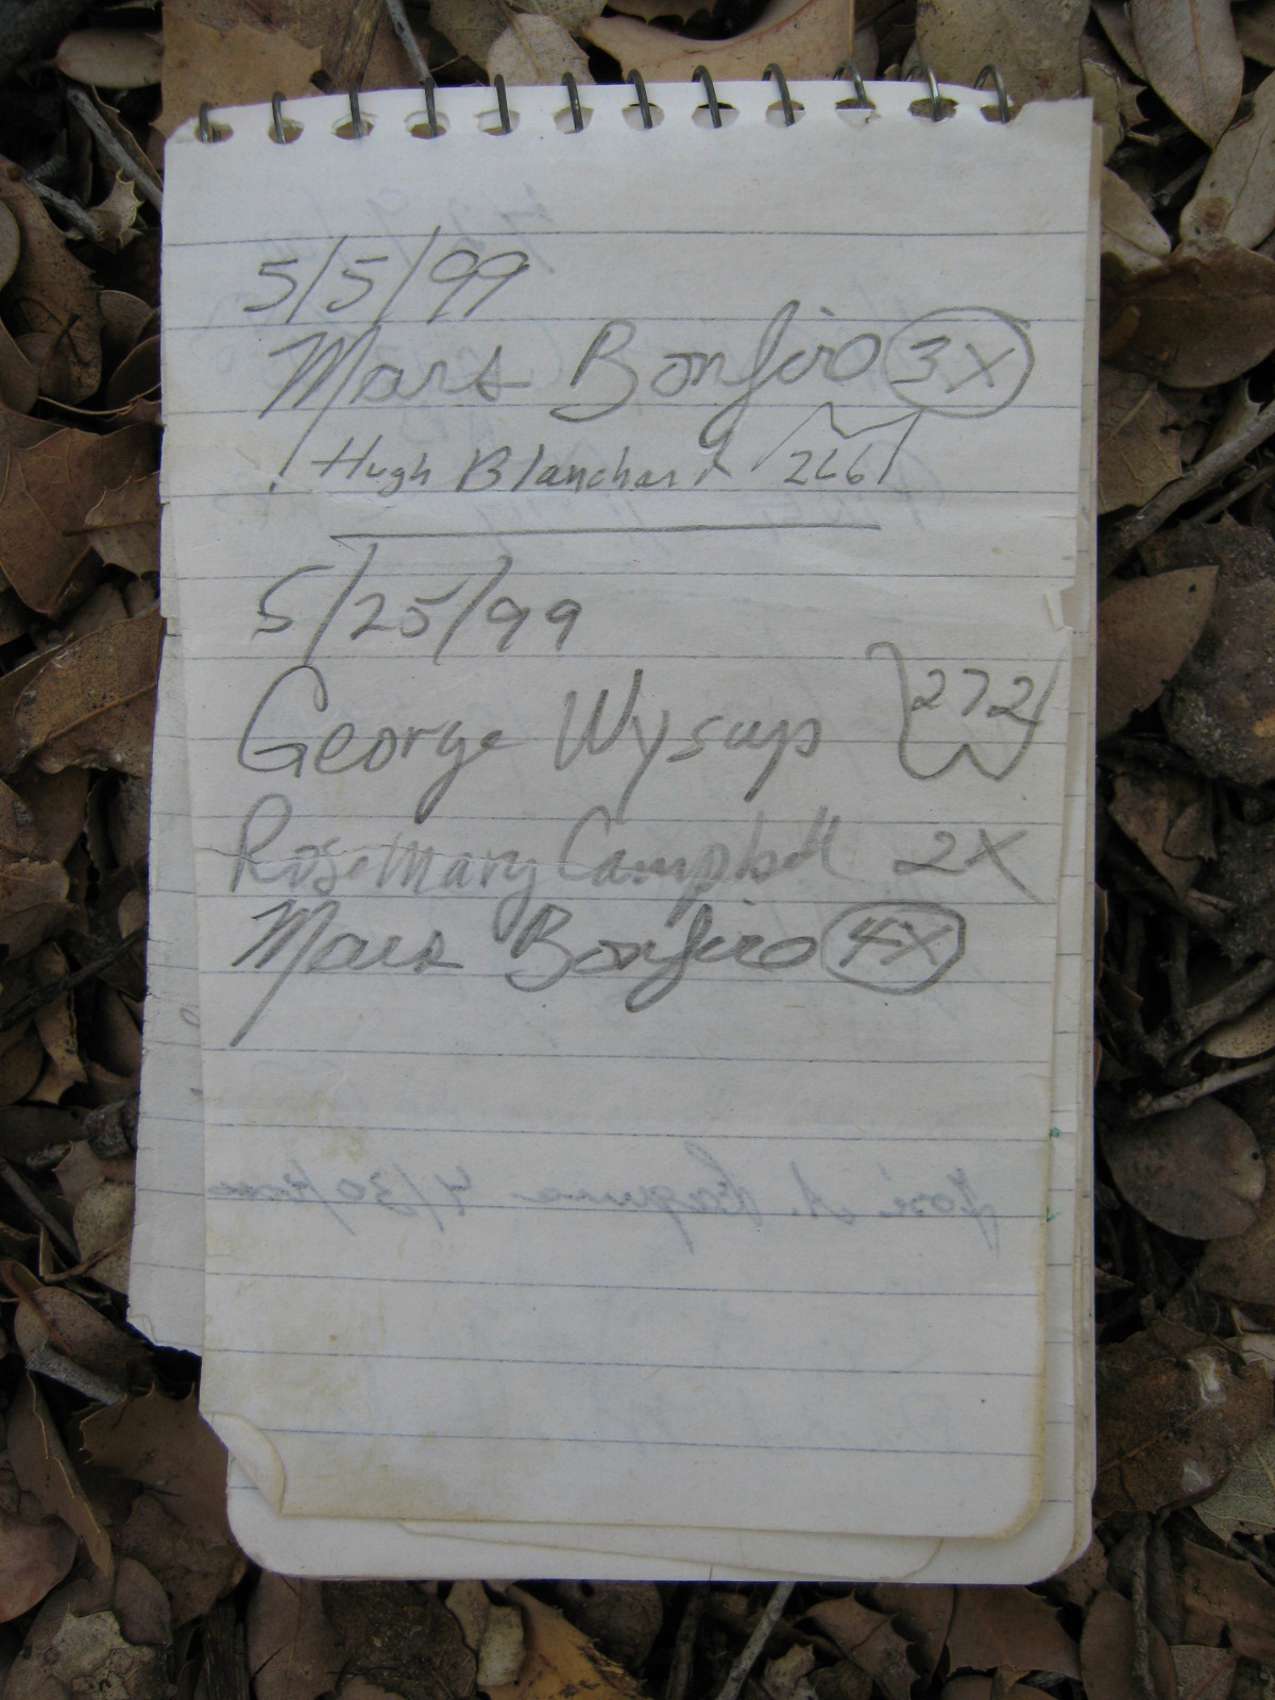 5/5/99
Mars Bonfiro 3X
Hugh Blanchard 266
5/25/99
George Wysup 272
RoseMary Campbell 2X
Mars Bonfiro 4X